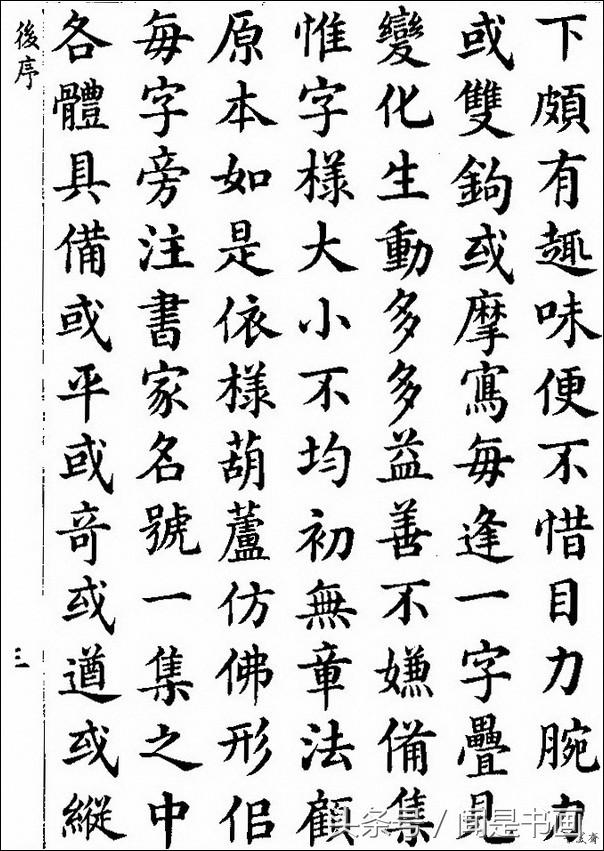 下頗有趣味便不惜目力腕力
或雙鉤或摩寫每逢一字疊見
變化生動多多益善不嫌備集
惟字樣大小不均初無章法顧
原本如是依樣葫蘆仿佛形佀
每字旁注書家名號一集之中
各體具備或平或竒或遒或縱
後序
三
头条号 / 闻是书画